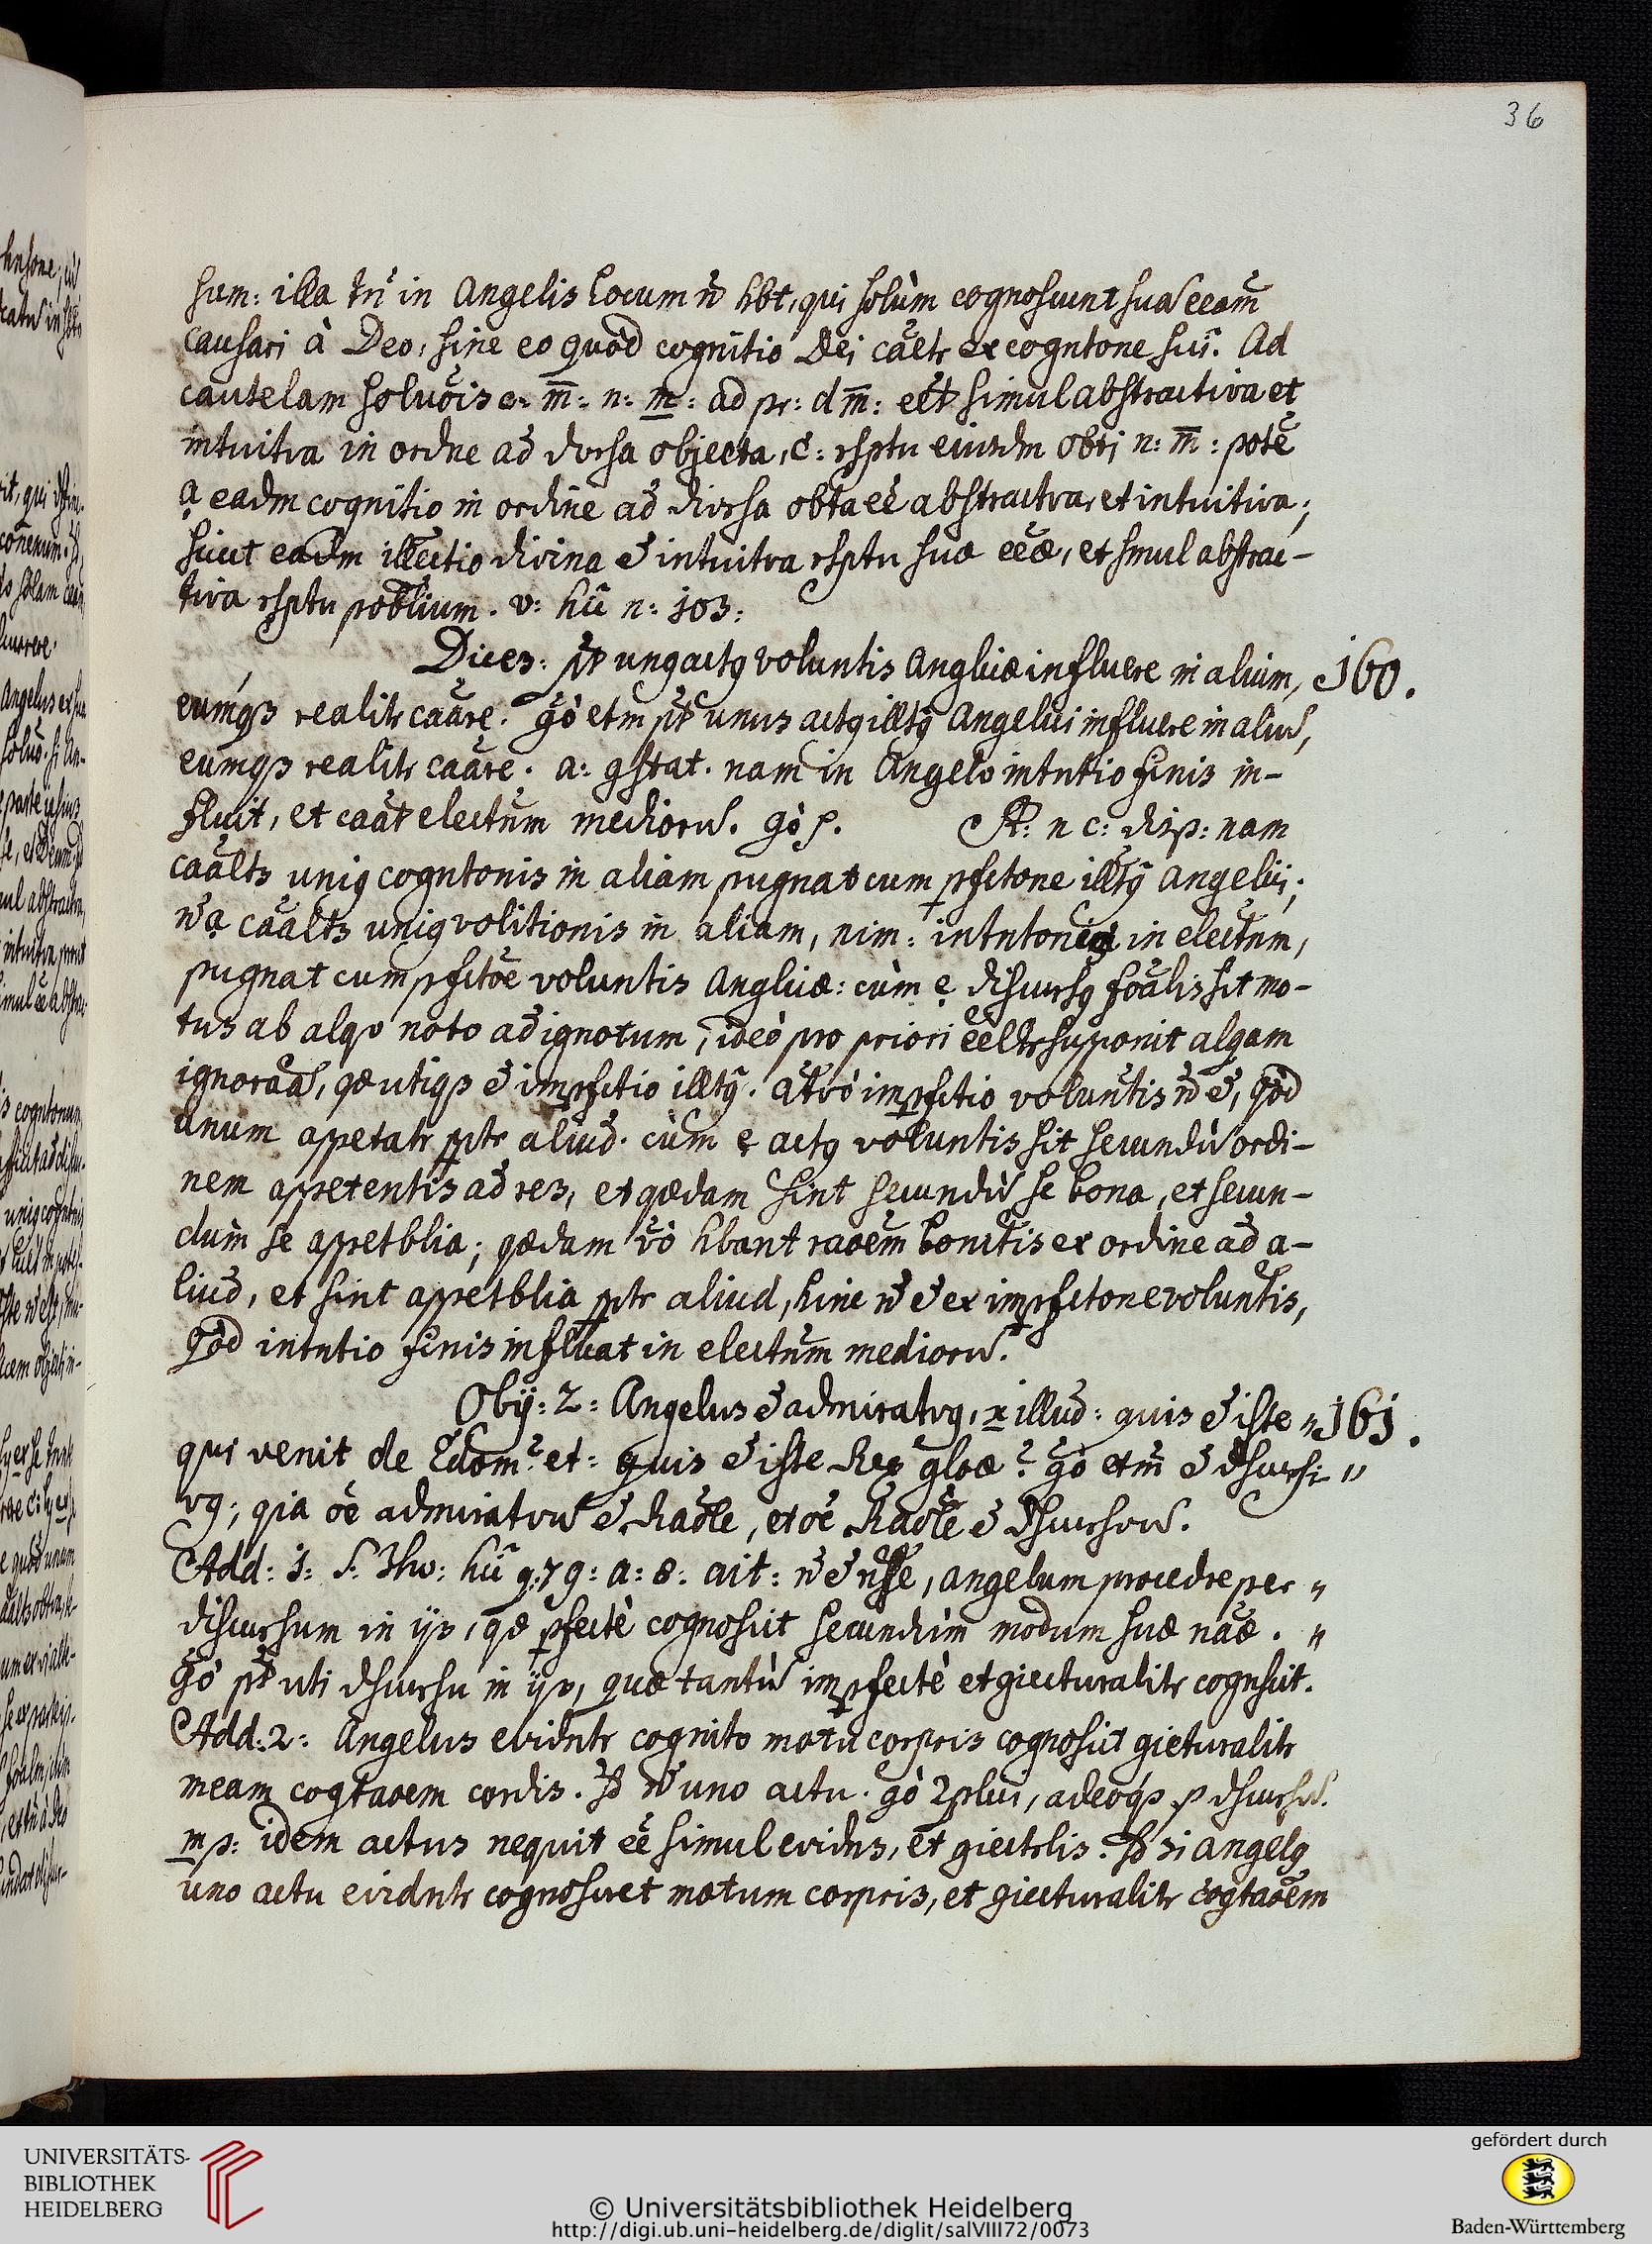 36
sum: illa tn̄ in Angelis locum n̄ hbt, qui solùm cognoscunt suā eēam
causari à Deo, sine eo quòd cognitio Dei caētr ex cogntone sui. Ad
cautelam
m̄: n: m̄: ad pr: d m̄: simul abstractiva et
intuitva in ordne ad dvrsa objecta, c: rsptu eiusdm obti n: m̄: potē
a eadm cognitio in ordine ad divrsa obta eē abstractva, et intuitiva;
sicut eadm illectio divina ē intuitva rsptu suæ eēæ, et smul abstrac-
tiva rsptu poblium. v: hū n: 103:
Dices: pt unq actq voluntis Angliæ influere in alium, 160.
eumqs realitr caāre. gò etm pt unus actq illtq Angelici influere in aliū,
eumqs realitr caāre. a: gstat. nam in Angelo intntio finis in-
fluit, et caāt electnm mediorū. gò p. R: n c: disp: nam
caālts uniq cogntonis in aliam pugnat cum pfctone illtq Angelii;
n̄ a caālts uniq volitionis in aliam, nim: intntonis in electnm,
pugnat cum pfctōe voluntis Angliæ: cùm e discursq foālis sit mo-
tus ab alqo noto ad ignotum, ideò pro priori eēltr supponit alqam
ignorāā, qæ utiqs ē impfctio illtq. at vò impfctio voluntis n̄ ē, qòd
unum apetatr pptr aliud. cùm e actq voluntis sit secundū ordi-
nem appetentis ad res, et qædam sint secundū se bona, et secun-
dùm se apretblia; qædam vò hbant raōem bonitis ex ordine ad a-
liud, et sint appetblia pptr aliud, hinc n̄ ē ex impfctone voluntis,
qòd intntio finis influat in electnm mediorū.
Obij: 2: Angelus ē admirativq, x illud: quis ē iste " 161.
qui venit de Edom? et: quis ē iste Rex gloæ? gò etm̄ ē dscursi- "
vq; qia oē admirativū ē Raōle, et oē Raōle ē dscursivū.
Add: 1: S. Tho: hū q: 79: a: 8: ait: n̄ ē nsse, angelum procedre per "
discursum in ijs, qæ pfectè cognoscit secundùm modum suæ nāæ. "
gò pt uti dscursu in ijs, quæ tantū impfectè et giecturalitr cognscit.
Add: 2: Angelus evidntr cognito motu corpris cognoscit giecturalitr
meam cogtaōem cordis. sd n̄ uno actu. gò 2plici, adeoqs p dscursū.
mp: idem actus nequit eē simul evidns, et giectrlis. sd si angelq
uno actu evidntr cognosceret motum corpris, et giecturalitr cogtaōem
UNIVERSITÄTS-
BIBLIOTHEK
HEIDELBERG
© Universitätsbibliothek Heidelberg
http://digi.ub.uni-heidelberg.de/diglit/salVIII72/0073
gefördert durch
Baden-Württemberg